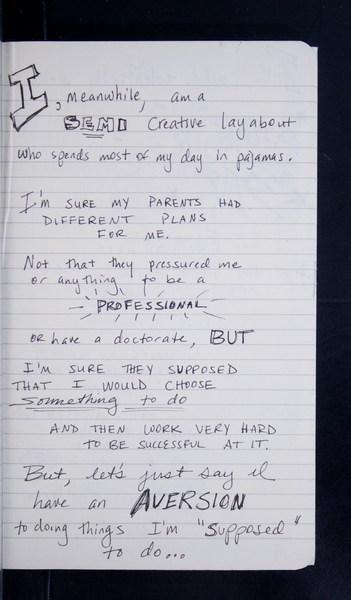 I, meanwhile, am a
SEMI Creative layabout
who spends most of my day in pajamas.
I'm SURE MY PARENTS HAD
DIFFERENT PLANS
FOR ME.
Not that they pressured me
or anything, to be a
PROFESSIONAL
OR have a doctorate, BUT
I'M SURE THEY SUPPOSED
THAT I WOULD CHOOSE
Something to do
AND THEN WORK VERY HARD
TO BE SUCCESSFUL AT IT.
But, let's just say I
have an AVERSION
to doing things I'm "Supposed"
to do...